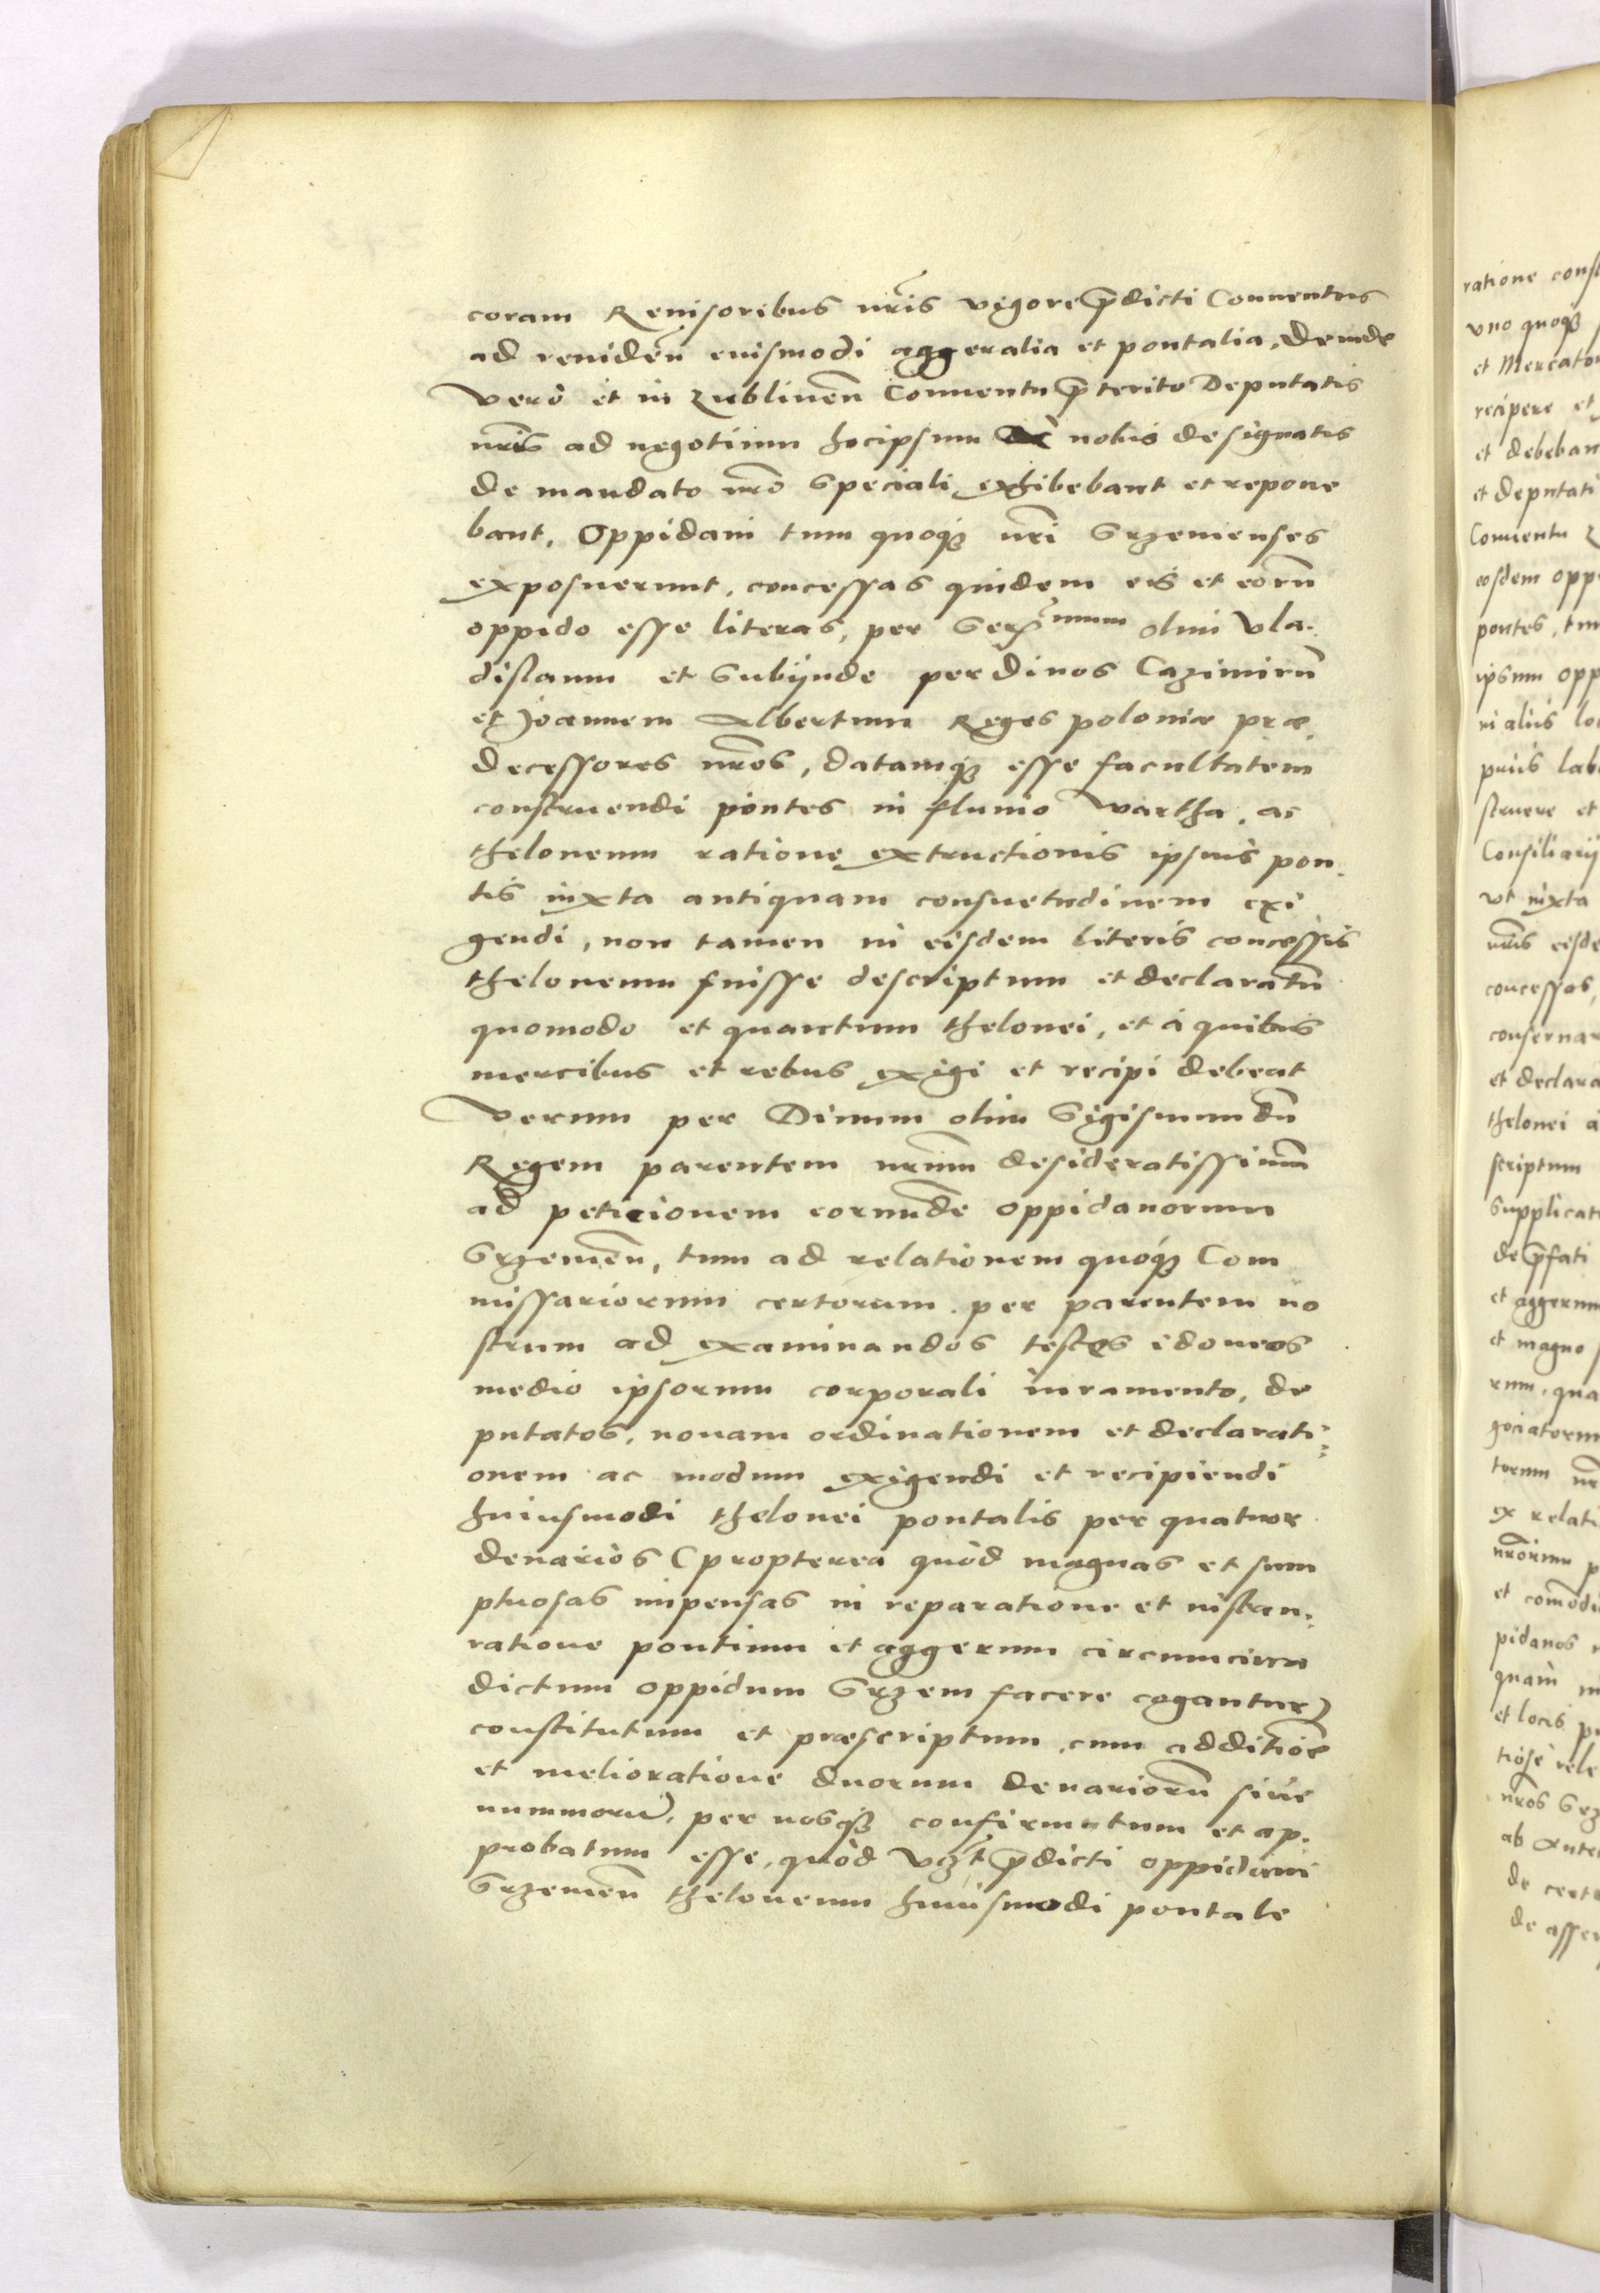 coram Reuisoribus nr̃is vigore p̃dicti Conuentus
ad reuideñ eiusmodi aggeralia et pontalia, deinde
vero et in Lublineñ Conuentu p̃terito Deputatis
nr̃is ad negotium hocipsum à nobis designatis
de mandato nr̃o speciali exhibebant et repone
bant, Oppidani tum quoqꝫ nr̃i Srzemenses
exposuerunt, concessas quidem eis et eorũ
oppido esse literas, per Serͫᵐᵘᵐ olim Vla.
dislaum et subijnde per diuos Cazimirũ
et Joannem Albertum Reges poloniæ præ.
decessores nr̃os, datamqꝫ esse facultatem
construendi pontes in fluuio Wartha, ac
theloneum ratione extructionis ipsius pon.
tis iuxta antiquam consuetudinem exi
gendi, non tamen in eisdem literis concessis
theloneum fuisse descriptum et declaratũ
quomodo et quantum thelonei, et à quibus
mercibus et rebus exigi et recipi debeat
Verum per Diuum olim Sigismundũ
Regem parentem nr̃um desideratissimũ
ad peticionem eorunde oppidanorum
Srzemeñ, tum ad relationem quóqꝫ Com
missariorum certorum per parentem no
strum ad examinandos testes idoneos
medio ipsorum corporali iuramento, de
putatos, nouam ordinationem et declarati:
onem ac modum exigendi et recipiendi
huiusmodi thelonei pontalis per quatuor
denarios (propterea quòd magnas et sum
ptuosas impensas in reparatione et instau.
ratione pontium et aggerum circumcirca
dictum oppidum Srzem facere cogantur)
constitutum et præscriptum, cum additiõe
et melioratione duorum denariorũ siue
nummorũ, per nosqꝫ confirmatum et ap.
probatum esse, quòd vꝫt p̃dicti oppidani
Srzemeñ theloneum huiusmodi pontale
ratione const
vno quoqꝫ
et Mercator
recipere et
et debeban
et deputati
Conuentu
eosdem opp
pontes, tu
ipsum opp
in aliis lo
priis lab
struere et
Consiliarij
vt iuxta
nr̃is eisde
concessas,
conseruar
et declara
thelonei a
scriptum
supplicat
de p̃fati
et aggerum
et magno
rum, qua
gociatorum
torum nr̃
ex relati
nr̃orum p
et comõdi
pidanos
quàm in
et locis p
tiose rele
nr̃os Srz
ab Ante
de cert
de asser